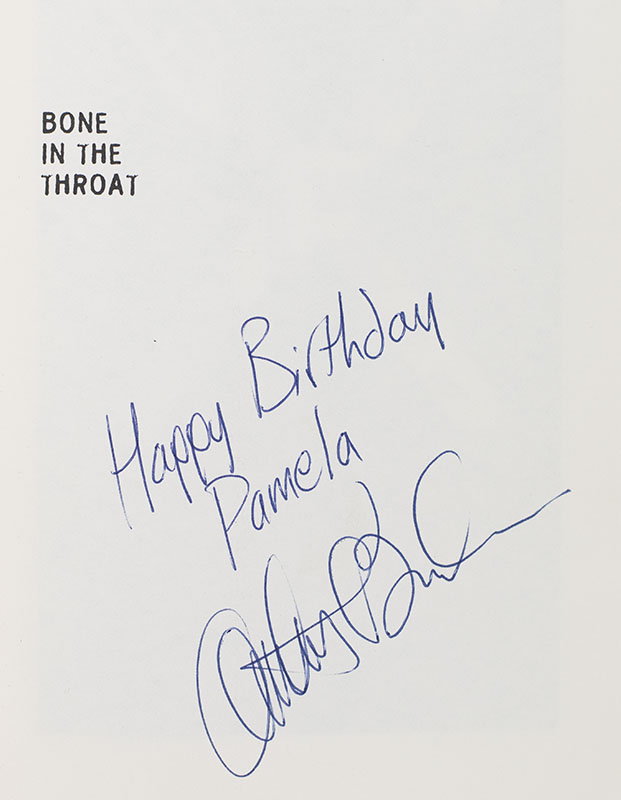 BONE
IN THE
THROAT
Happy Birthday
Pamela